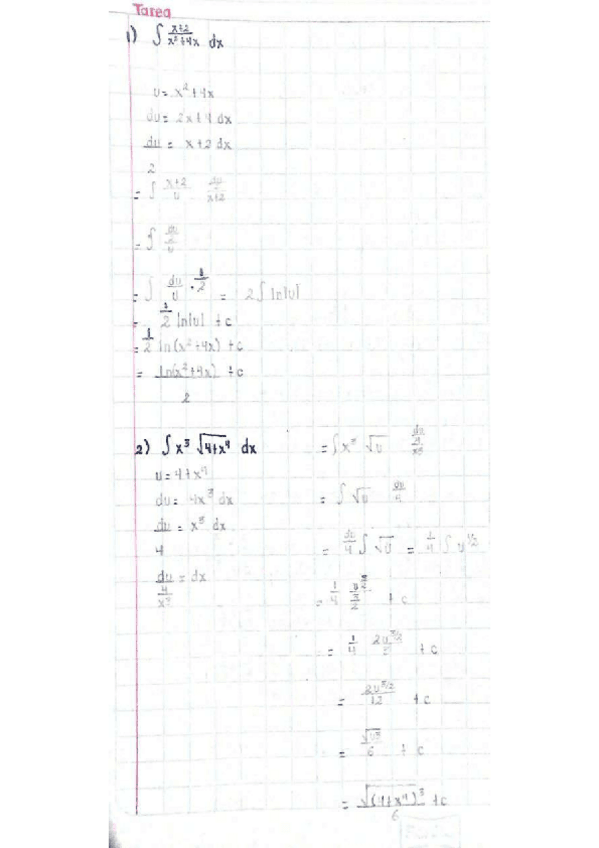 Tarea
1) ∫ x+2/x²+4x dx
u= x²+4x
du= 2x+4 dx
du/2 = x+2 dx
= ∫ x+2/u du/2/x+2
= ∫ du/2/u
= ∫ du/u · 1/2 = 2∫ ln|u|
= 1/2 ln|u| +c
= 1/2 ln(x²+4x) +c
= ln(x²+4x)/2 +c
2) ∫ x³ √4+x⁴ dx
u= 4+x⁴
du= 4x³ dx
du/4 = x³ dx
du/4/x³ = dx
= ∫ x³ √u du/4/x³
= ∫ √u du/4
= du/4 ∫ √u = 1/4 ∫ u^1/2
= 1/4 u^3/2/3/2 + c
= 1/4 2u^3/2/3 + c
= 2u^3/2/12 + c
= √u³/6 + c
= √(4+x⁴)³/6 +c